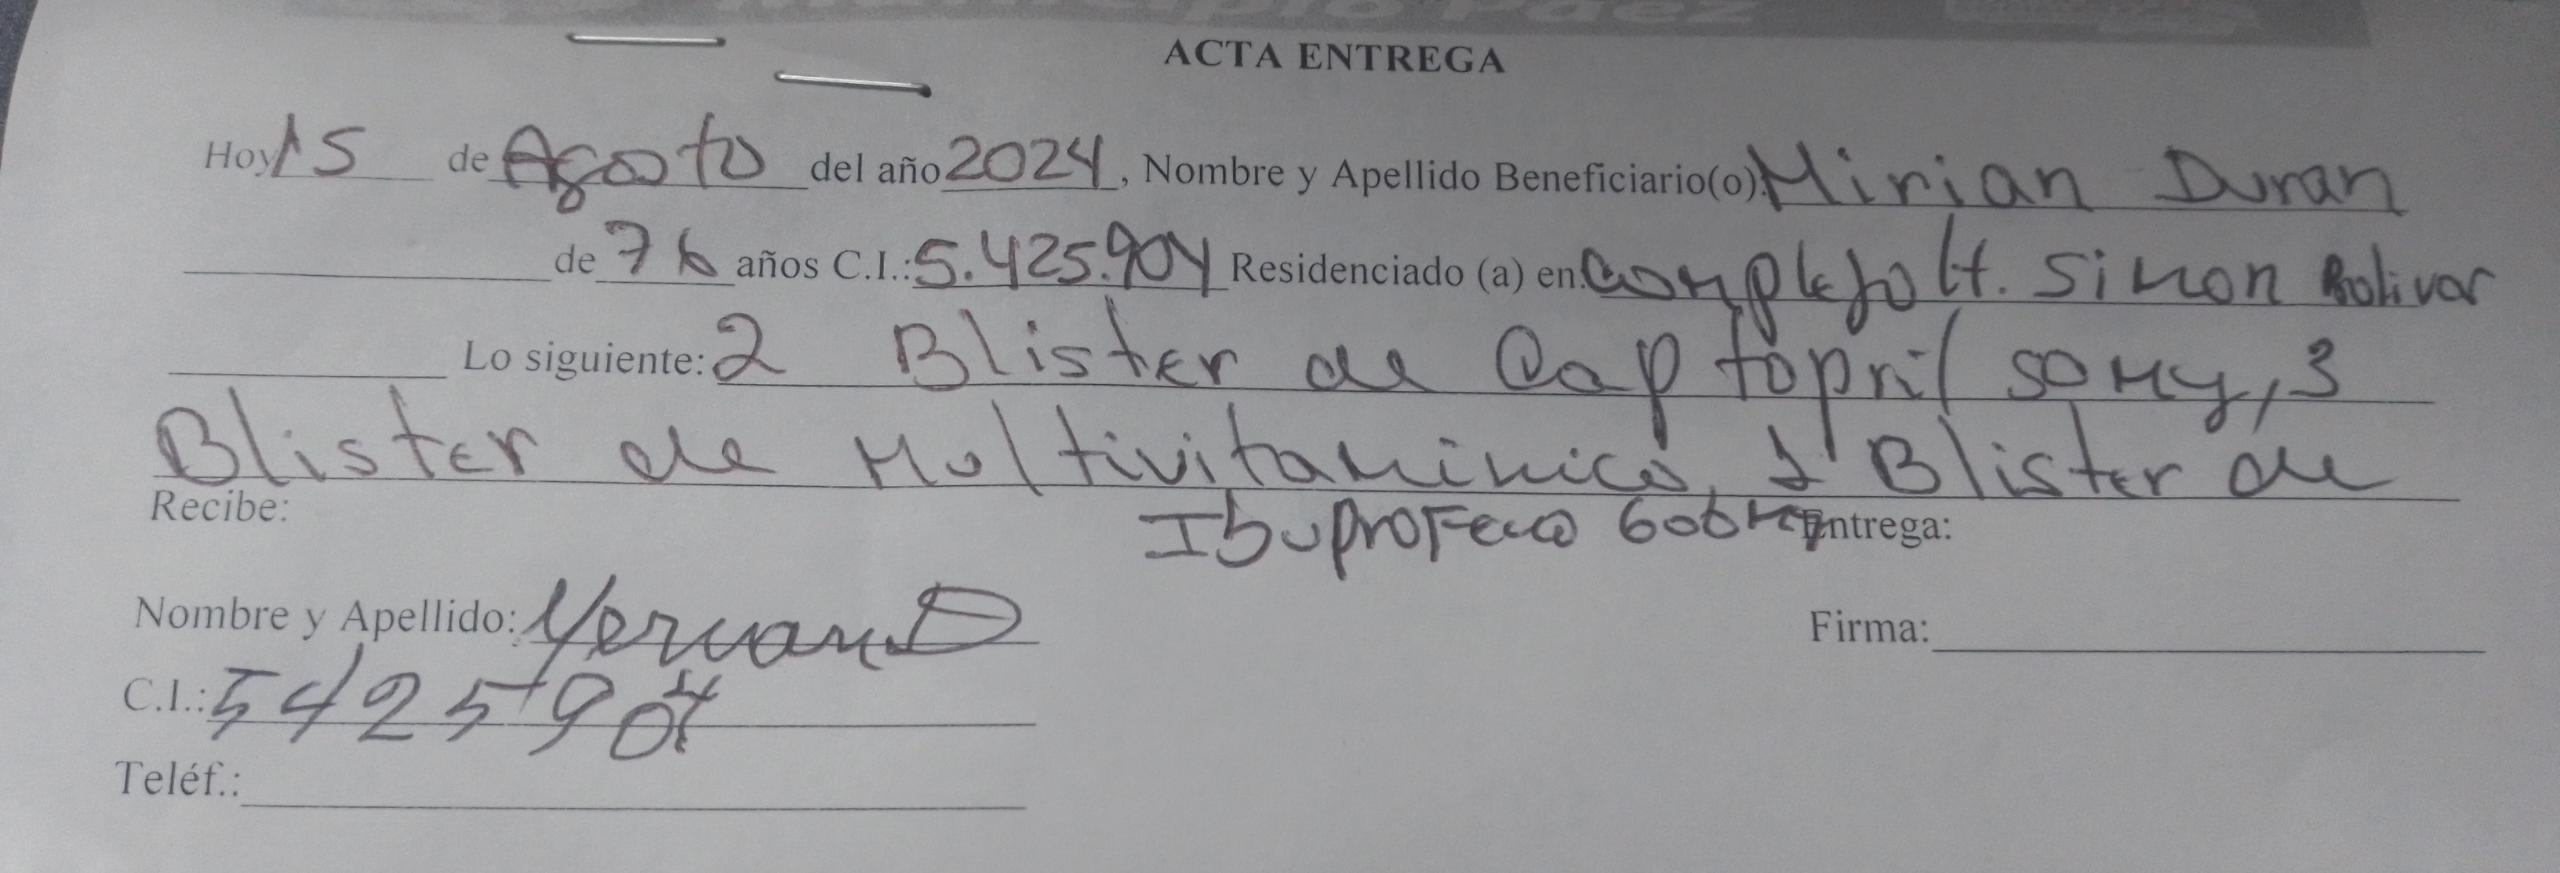 Municipio Páez
ACTA ENTREGA
Hoy 15 de Agosto del año 2024, Nombre y Apellido Beneficiario(o): Mirian Duran
de 76 años C.I.: 5.425.904 Residenciado (a) en: Complejo Ht. Simon Bolivar
Lo siguiente: 2 Blister de Captopril 50 Mg, 3
Blister de Multivitaminico, 1 Blister de
Ibuprofeno 600 Mg
Recibe: Entrega:
Nombre y Apellido: Firma:
C.I.: 5425904
Teléf.: